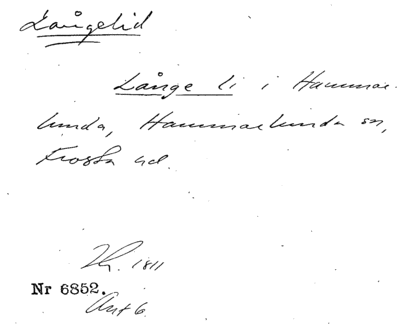 Långelid
Långe li i Hammar-
lunda, Hammarlunda sn,
Frosta hd.
1811
Nr 6852.
Ant 6.